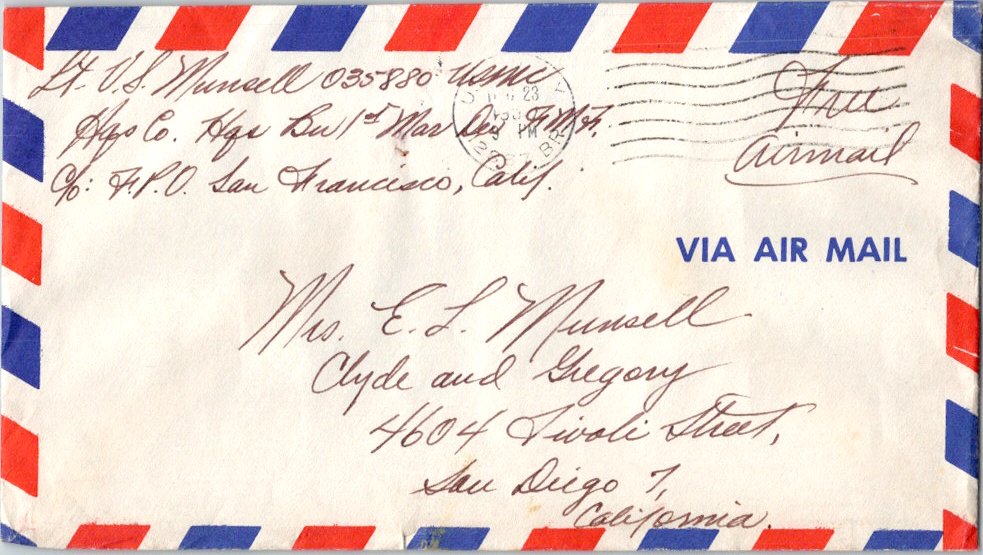 Lt. V.S. Munsell 035880 USMC
Hqs Co. Hqs Bn 1st Mar Div F.M.F.
c/o: F.P.O. San Francisco, Calif.
23
PM
Free
airmail
VIA AIR MAIL
Mrs. E. L. Munsell
Clyde and Gregory
4604 Tivoli Street,
San Diego 7,
California.